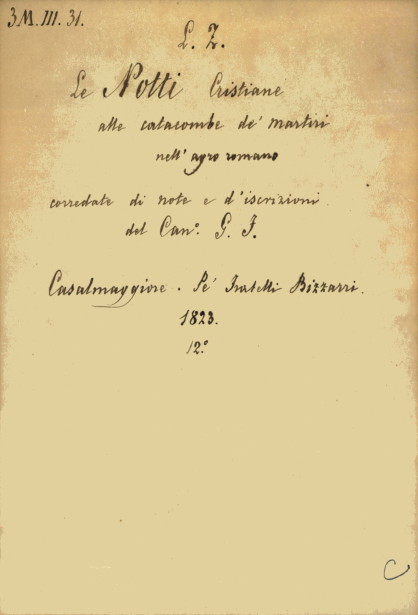 3M. III. 31.
L. Z.
Le Notti Cristiane
alle catacombe de' martiri
nell' agro romano
corredate di note e d'iscrizioni
del Can.º G. F.
Casalmaggiore. Pe' Fratelli Bizzarri.
1823.
12.º
C